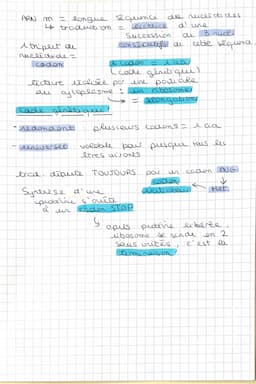 ARN m = longue séquence de nucléotides
↳ traduction = lecture d'une
succession de 3 nucl.
consécutifs de cette séquence
1 triplet de
nucléotide =
codon
1 codon = 1 aa
(code génétique)
lecture réalisée par une particule
du cytoplasme : un ribosome
↳ = élongation
Code génétique :
- redondant plusieurs codons = 1 aa
- universel valable pour presque tous les
êtres vivants
trad. débute TOUJOURS par un codon AUG
codon
initiateur
Met.
Synthèse d'une
protéine s'arrête
à un codon STOP
↳ après protéine libérée,
ribosome se scinde en 2
sous unités, c'est la
terminaison